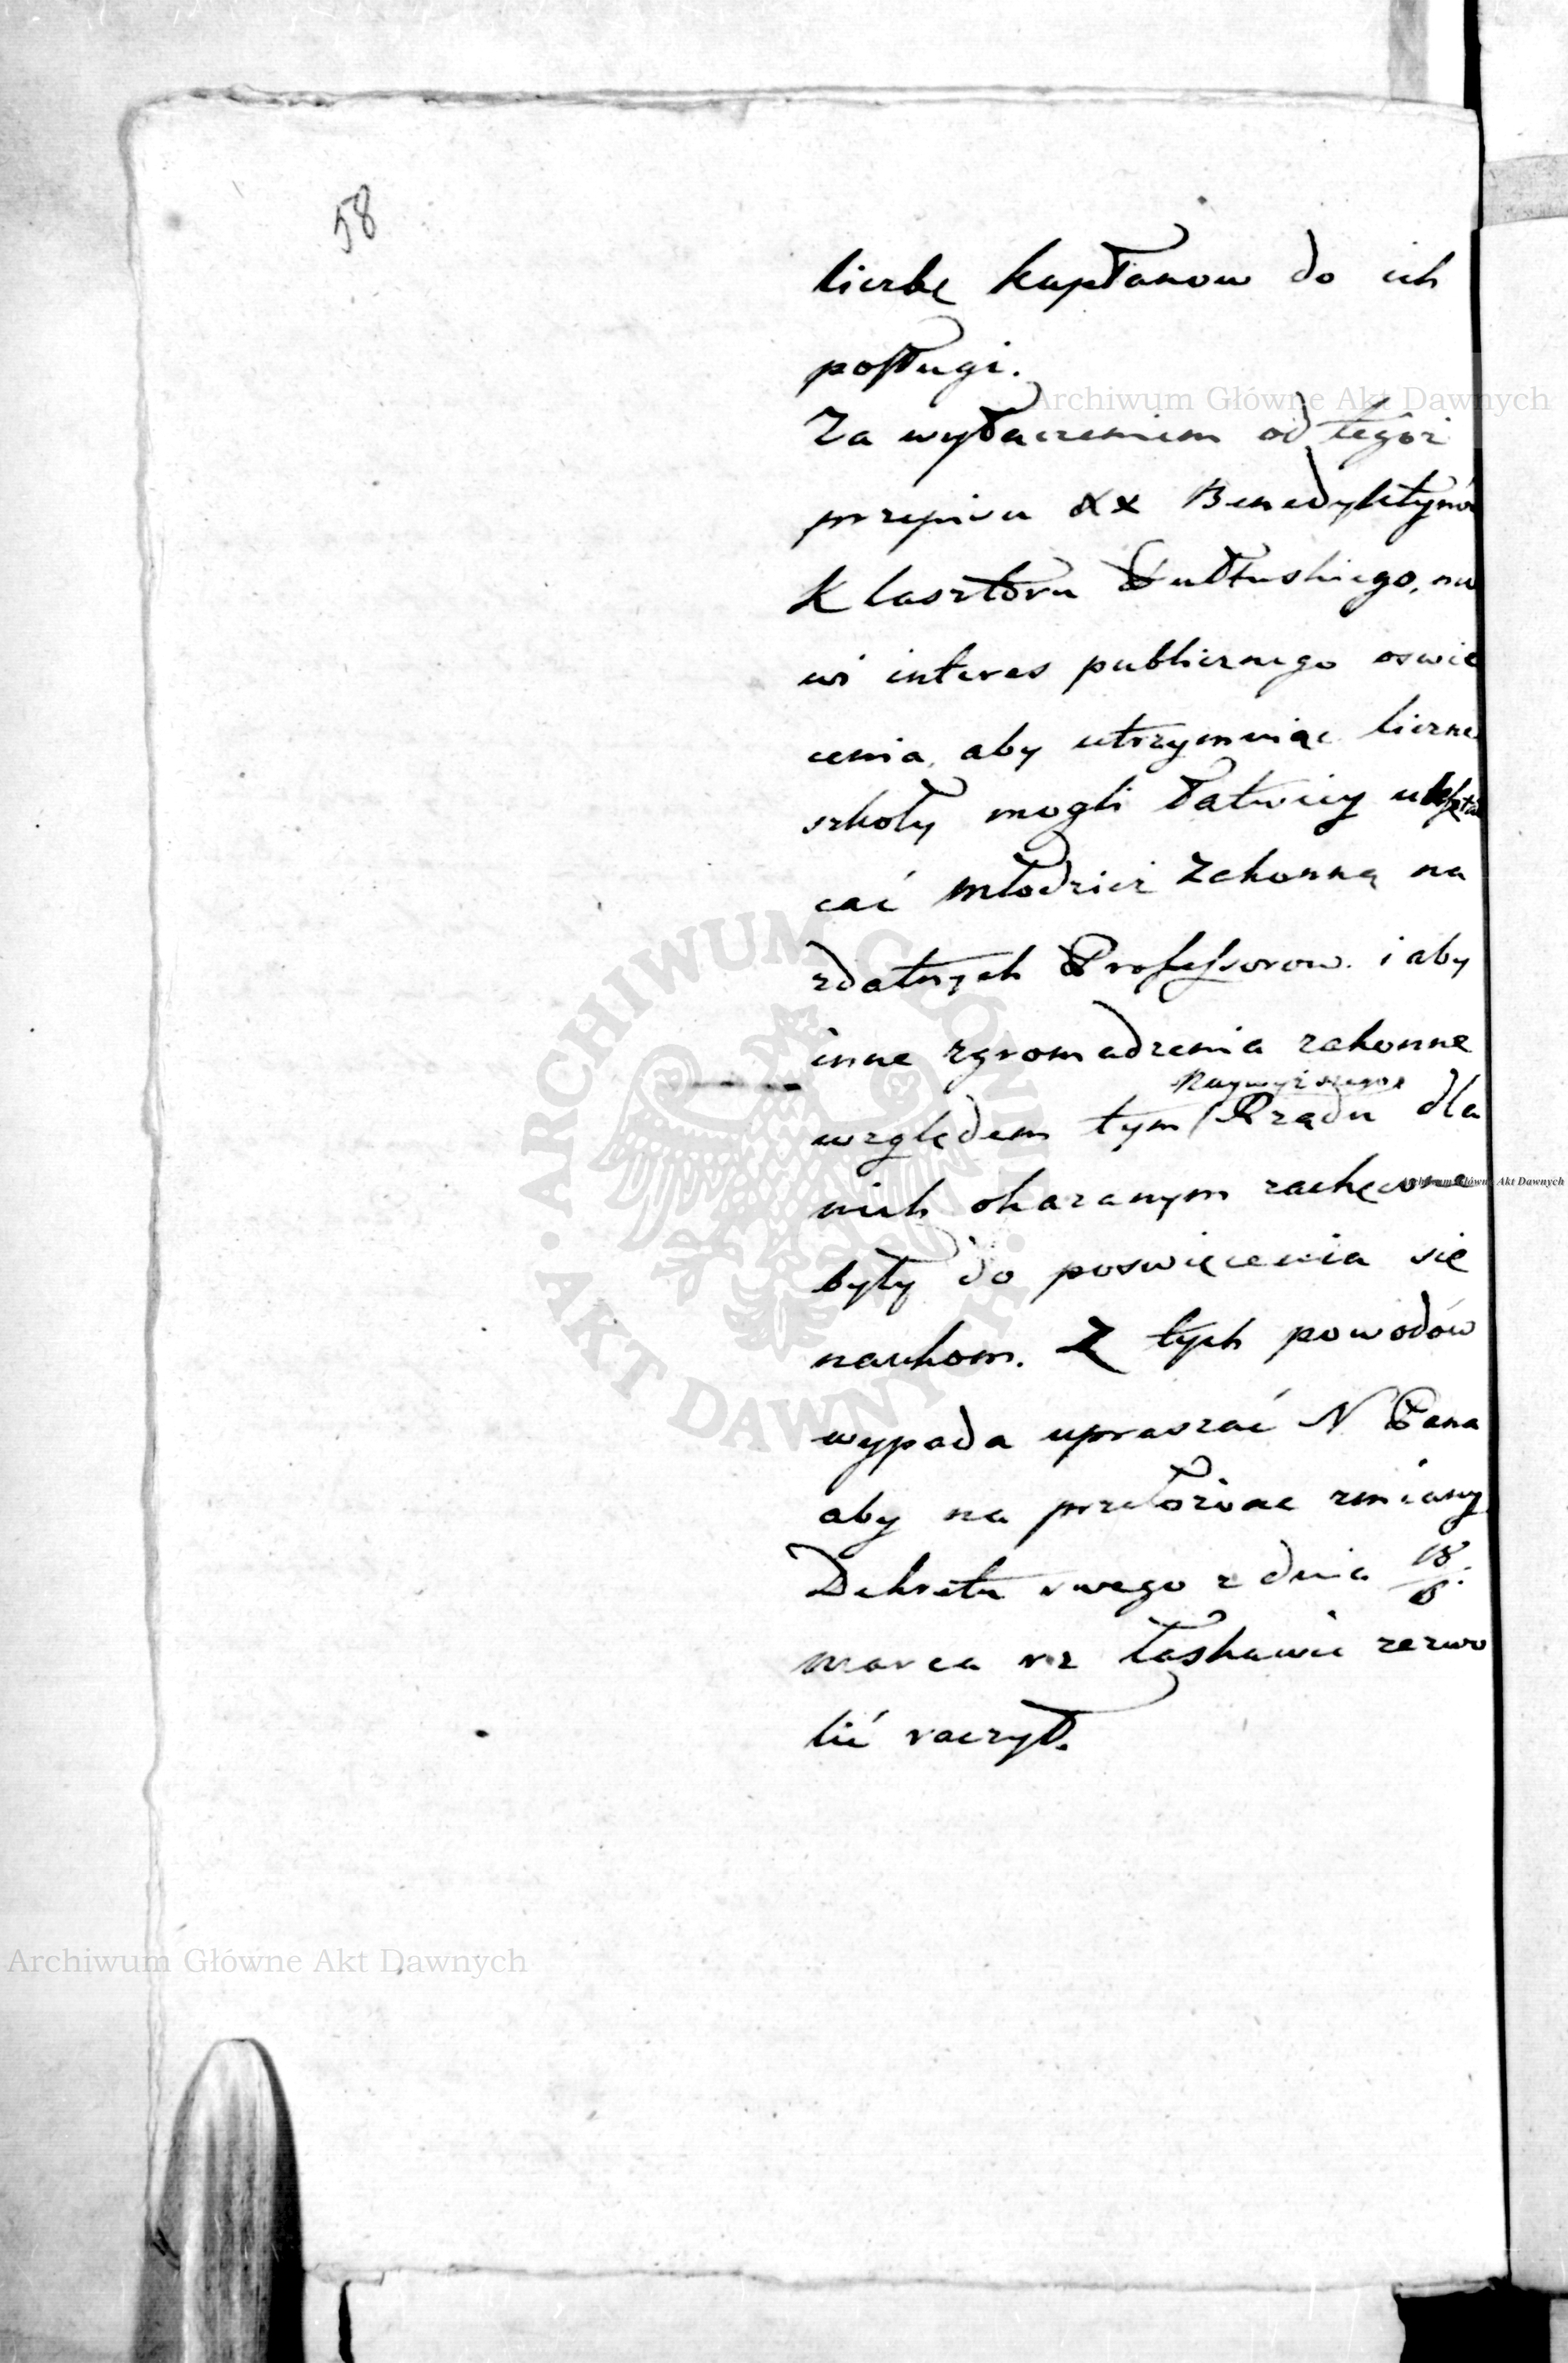 58
liczbę kapłanow do ich
posługi.
Za wyłaczeniem od tegoż
przepisu XX Benedyktynó
Klasztoru Pułtuskiego, mó
wi interes publicznego oswie
cenia, aby utrzymuiąc liczne
szkoły mogli łatwiey
cać młodzież zakonną na
zdatnych Professorow. i aby
inne zgromadzenia zakonne
Naywyższego
względem tym Rządu dla
nich okazanym zachęcone
były do poswięcenia się
naukom. Z tych powodów
wypada upraszać N Pana
aby na przełożone zmiany
Dekretu swego z dnia 18/
marca rz łaskawie zezwo
lić raczył.
Archiwum Główne Akt Dawnych
Archiwum Główne Akt Dawnych
Archiwum Główne Akt Dawnych
ARCHIWUM GŁÓWNE AKT DAWNYCH